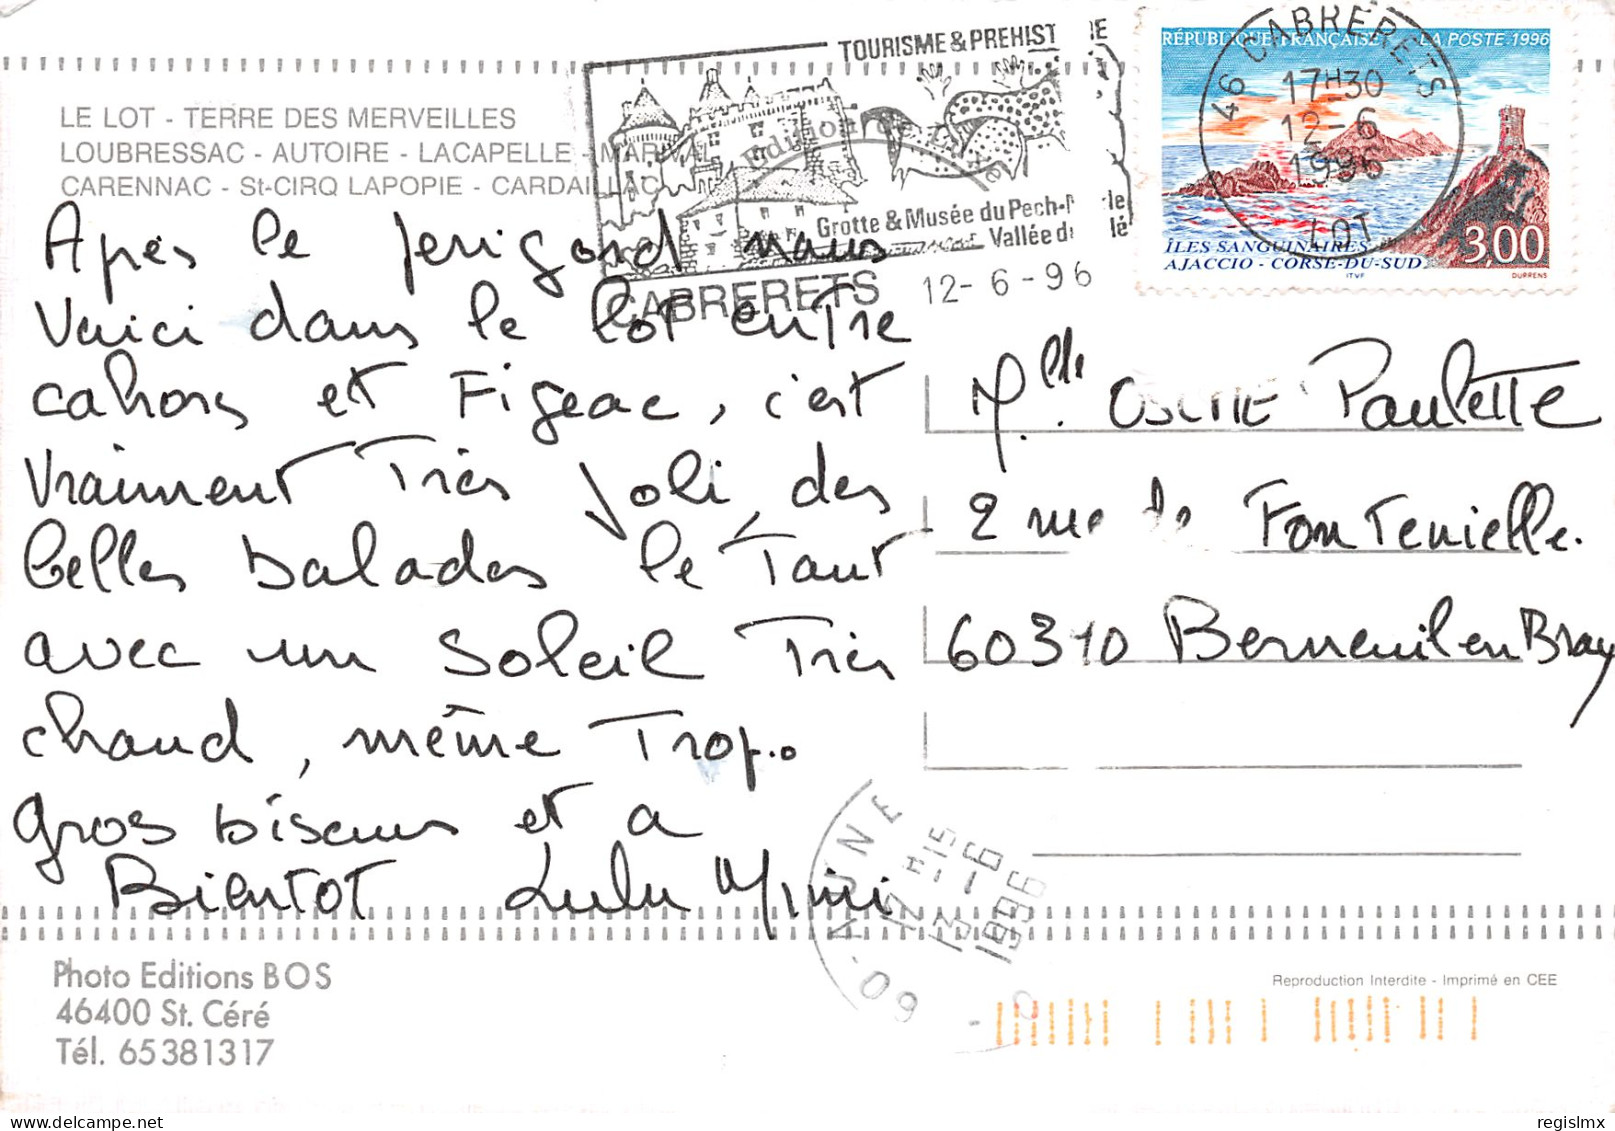 TOURISME & PREHISTOIRE
RÉPUBLIQUE FRANÇAISE LA POSTE 1996
46 CABRERETS
17H30
12-6
1996
LOT
ÎLES SANGUINAIRES
AJACCIO - CORSE-DU-SUD
3,00
ITVF
DURRENS
LE LOT - TERRE DES MERVEILLES
LOUBRESSAC - AUTOIRE - LACAPELLE - MARIVAL
CARENNAC - St-CIRQ LAPOPIE - CARDAILLAC
Edition de Luxe
Grotte & Musée du Pech-Merle
Vallée du Célé
CABRERETS 12-6-96
Après le Perigord nous
Voici dans le lot entre
cahors et Figeac, c'est
vraiment Très Joli, des
belles balades le Tout
avec un soleil Très
chaud, même Trop..
gros bisous et a
Bientot Lulu Mimi
Mlle Paulette
2 rue de Fontenielle.
60390 Berneuil en Bray
60 - AUNE
12H15
13-6
1996
Photo Editions BOS
46400 St. Céré
Tél. 65381317
Reproduction Interdite - Imprimé en CEE
regislmx